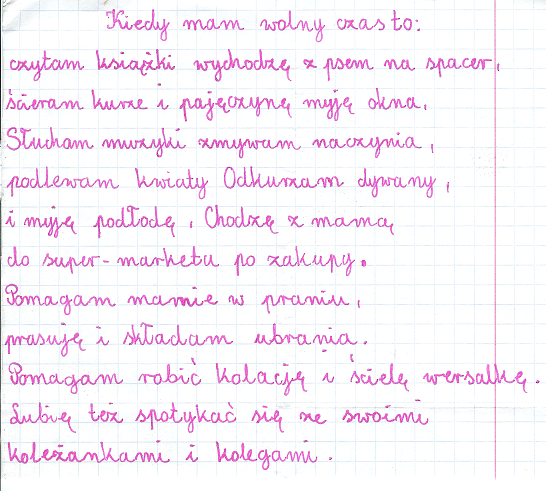 Kiedy mam wolny czas to:
czytam książki wychodzę z psem na spacer,
ścieram kurze i pajęczynę myję okna,
Słucham muzyki zmywam naczynia,
podlewam kwiaty Odkurzam dywany,
i myję podłodę, Chodzę z mamą
do super-marketu po zakupy.
Pomagam mamie w praniu,
prasuję i składam ubrania.
Pomagam robić kolację i ścielę wersalkę.
Lubię też spotykać się ze swoimi
koleżankami i kolegami.